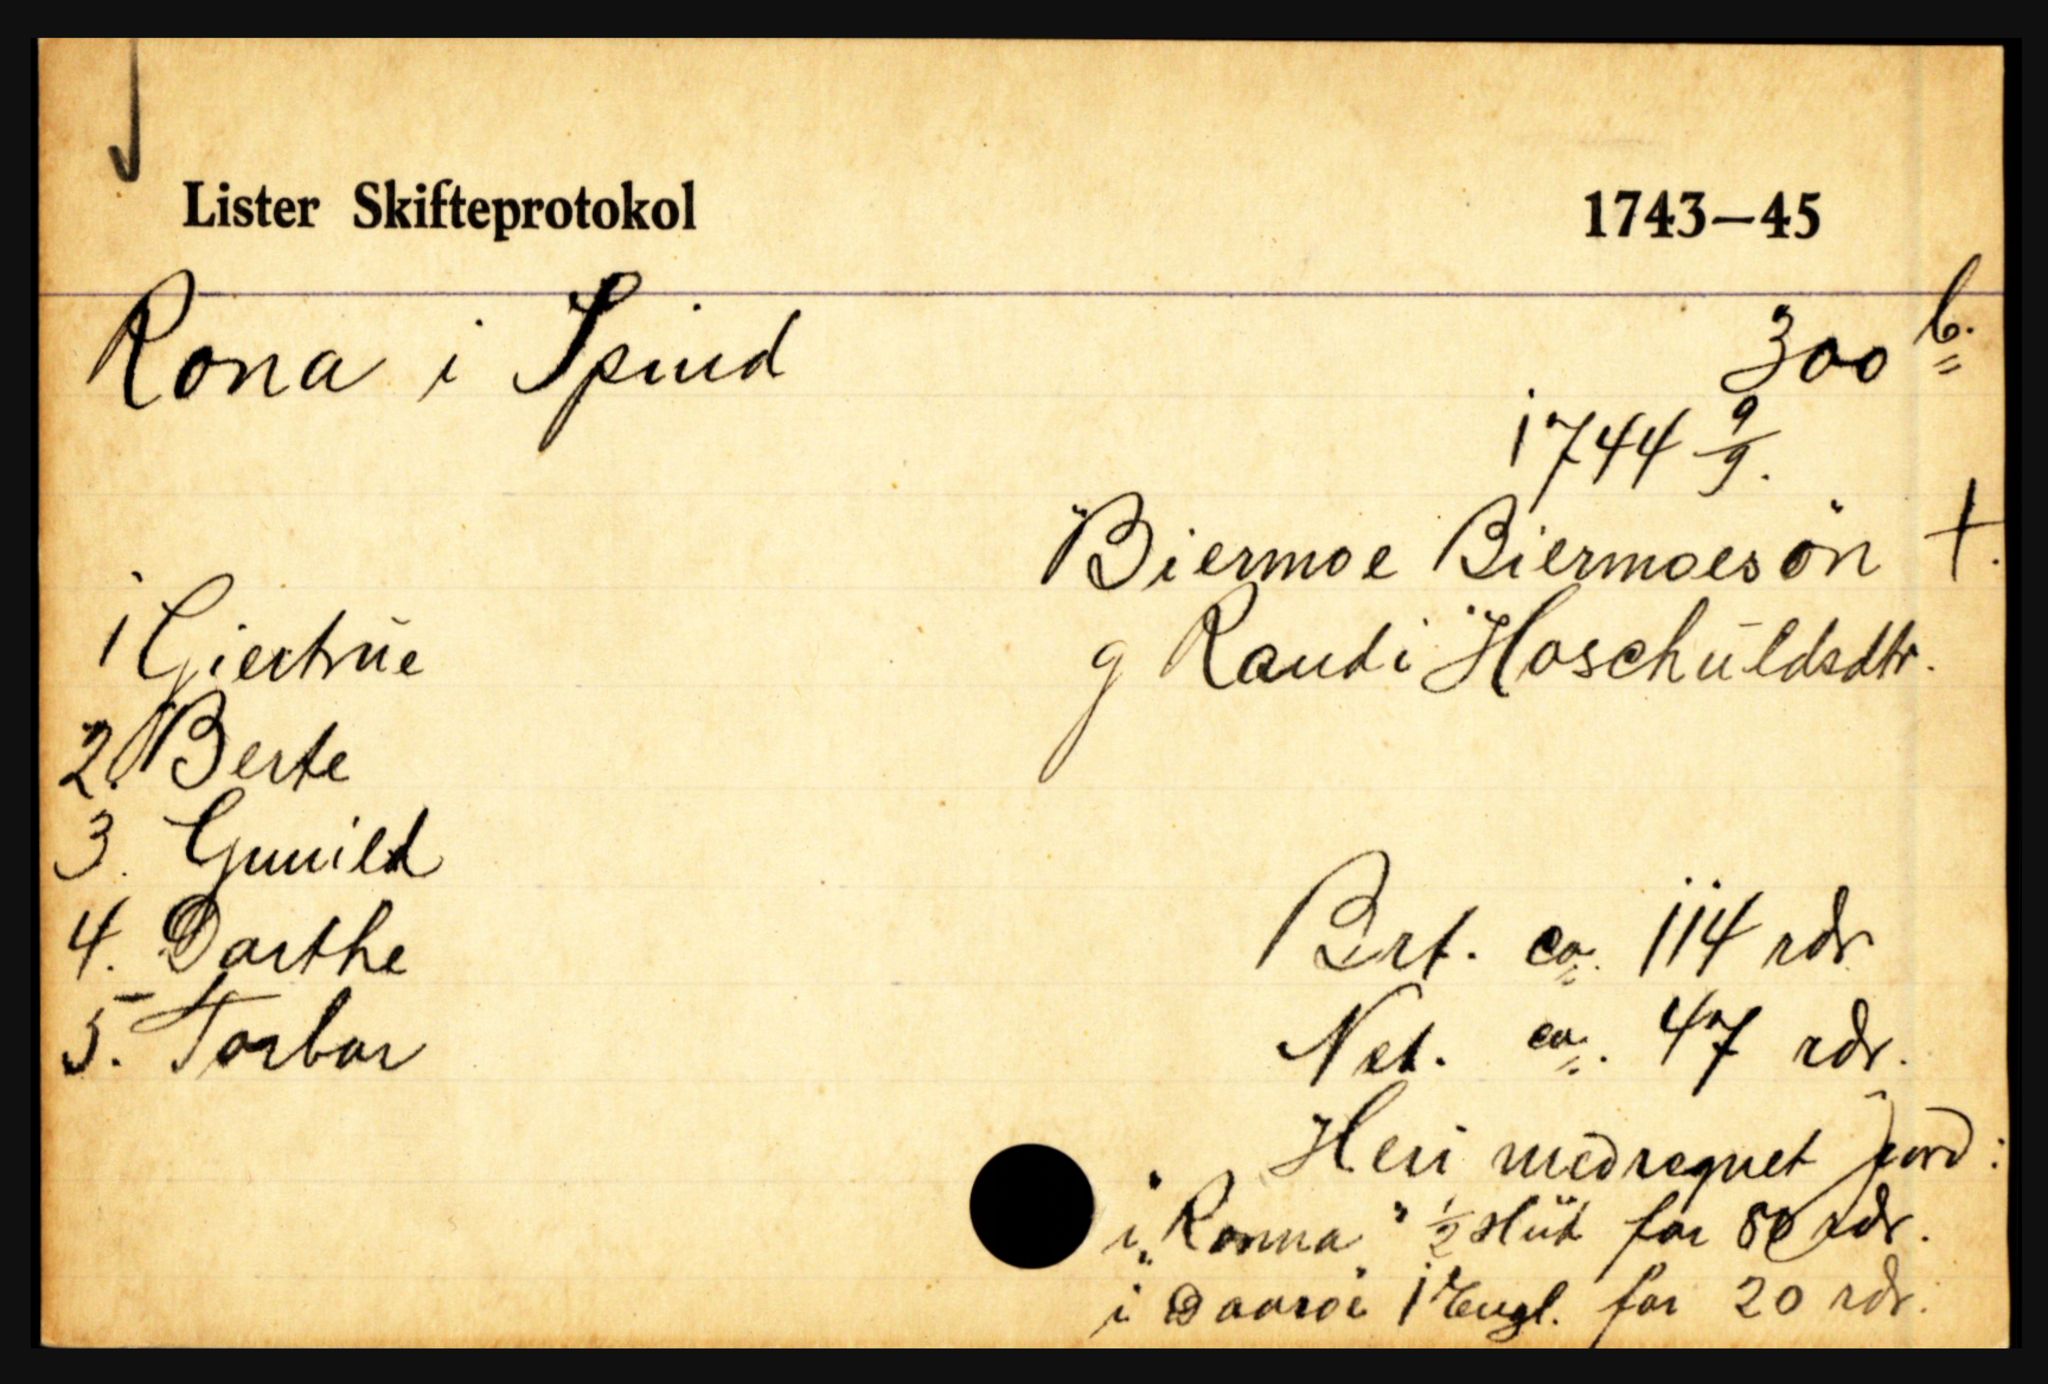 Lister Skifteprotokol 1743–45
Rona i Spind 300 b.
1744 9/9.
Biermoe Biermoesön †.
g Randi Hoschŭldsdtr.
1 Giertrŭe
2. Berte
3. Gunild
4. Dorthe
5. Torbor
Brt. ca. 114 rdr
Net. ca. 47 rdr.
Heri medregnet Jord:
i „Ronna" 1/2 Hŭd for 80 rdr.
i 1 Engl. for 20 rdr.